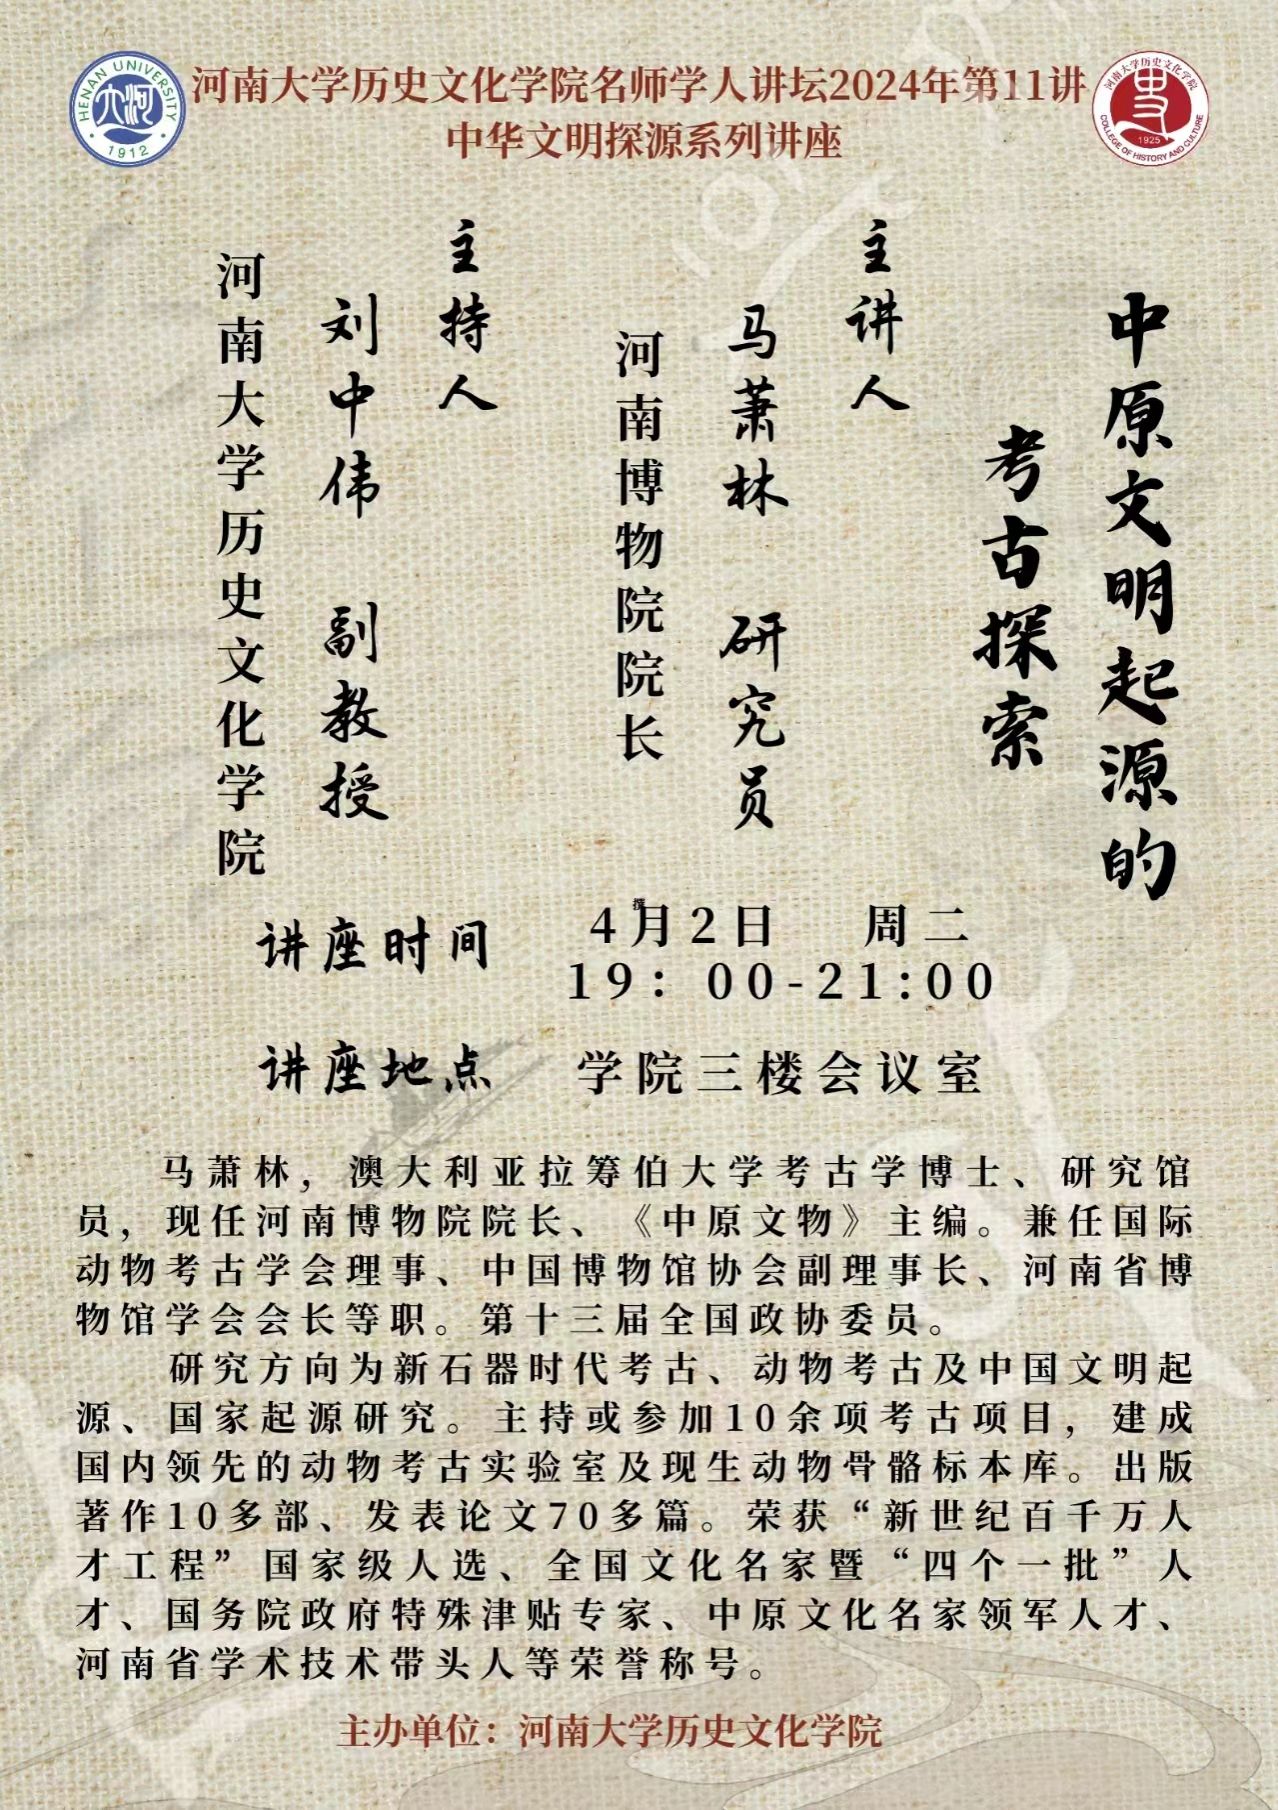 河南大学历史文化学院名师学人讲坛2024年第11讲
中华文明探源系列讲座
HENAN UNIVERSITY
1912
河南大学历史文化学院
1925
COLLEGE OF HISTORY AND CULTURE
中原文明起源的
考古探索
主讲人
马萧林 研究员
河南博物院院长
主持人
刘中伟 副教授
河南大学历史文化学院
讲座时间
4月2日 周二
19：00-21:00
讲座地点
学院三楼会议室
马萧林，澳大利亚拉筹伯大学考古学博士、研究馆
员，现任河南博物院院长、《中原文物》主编。兼任国际
动物考古学会理事、中国博物馆协会副理事长、河南省博
物馆学会会长等职。第十三届全国政协委员。
研究方向为新石器时代考古、动物考古及中国文明起
源、国家起源研究。主持或参加10余项考古项目，建成
国内领先的动物考古实验室及现生动物骨骼标本库。出版
著作10多部、发表论文70多篇。荣获“新世纪百千万人
才工程”国家级人选、全国文化名家暨“四个一批”人
才、国务院政府特殊津贴专家、中原文化名家领军人才、
河南省学术技术带头人等荣誉称号。
主办单位：河南大学历史文化学院